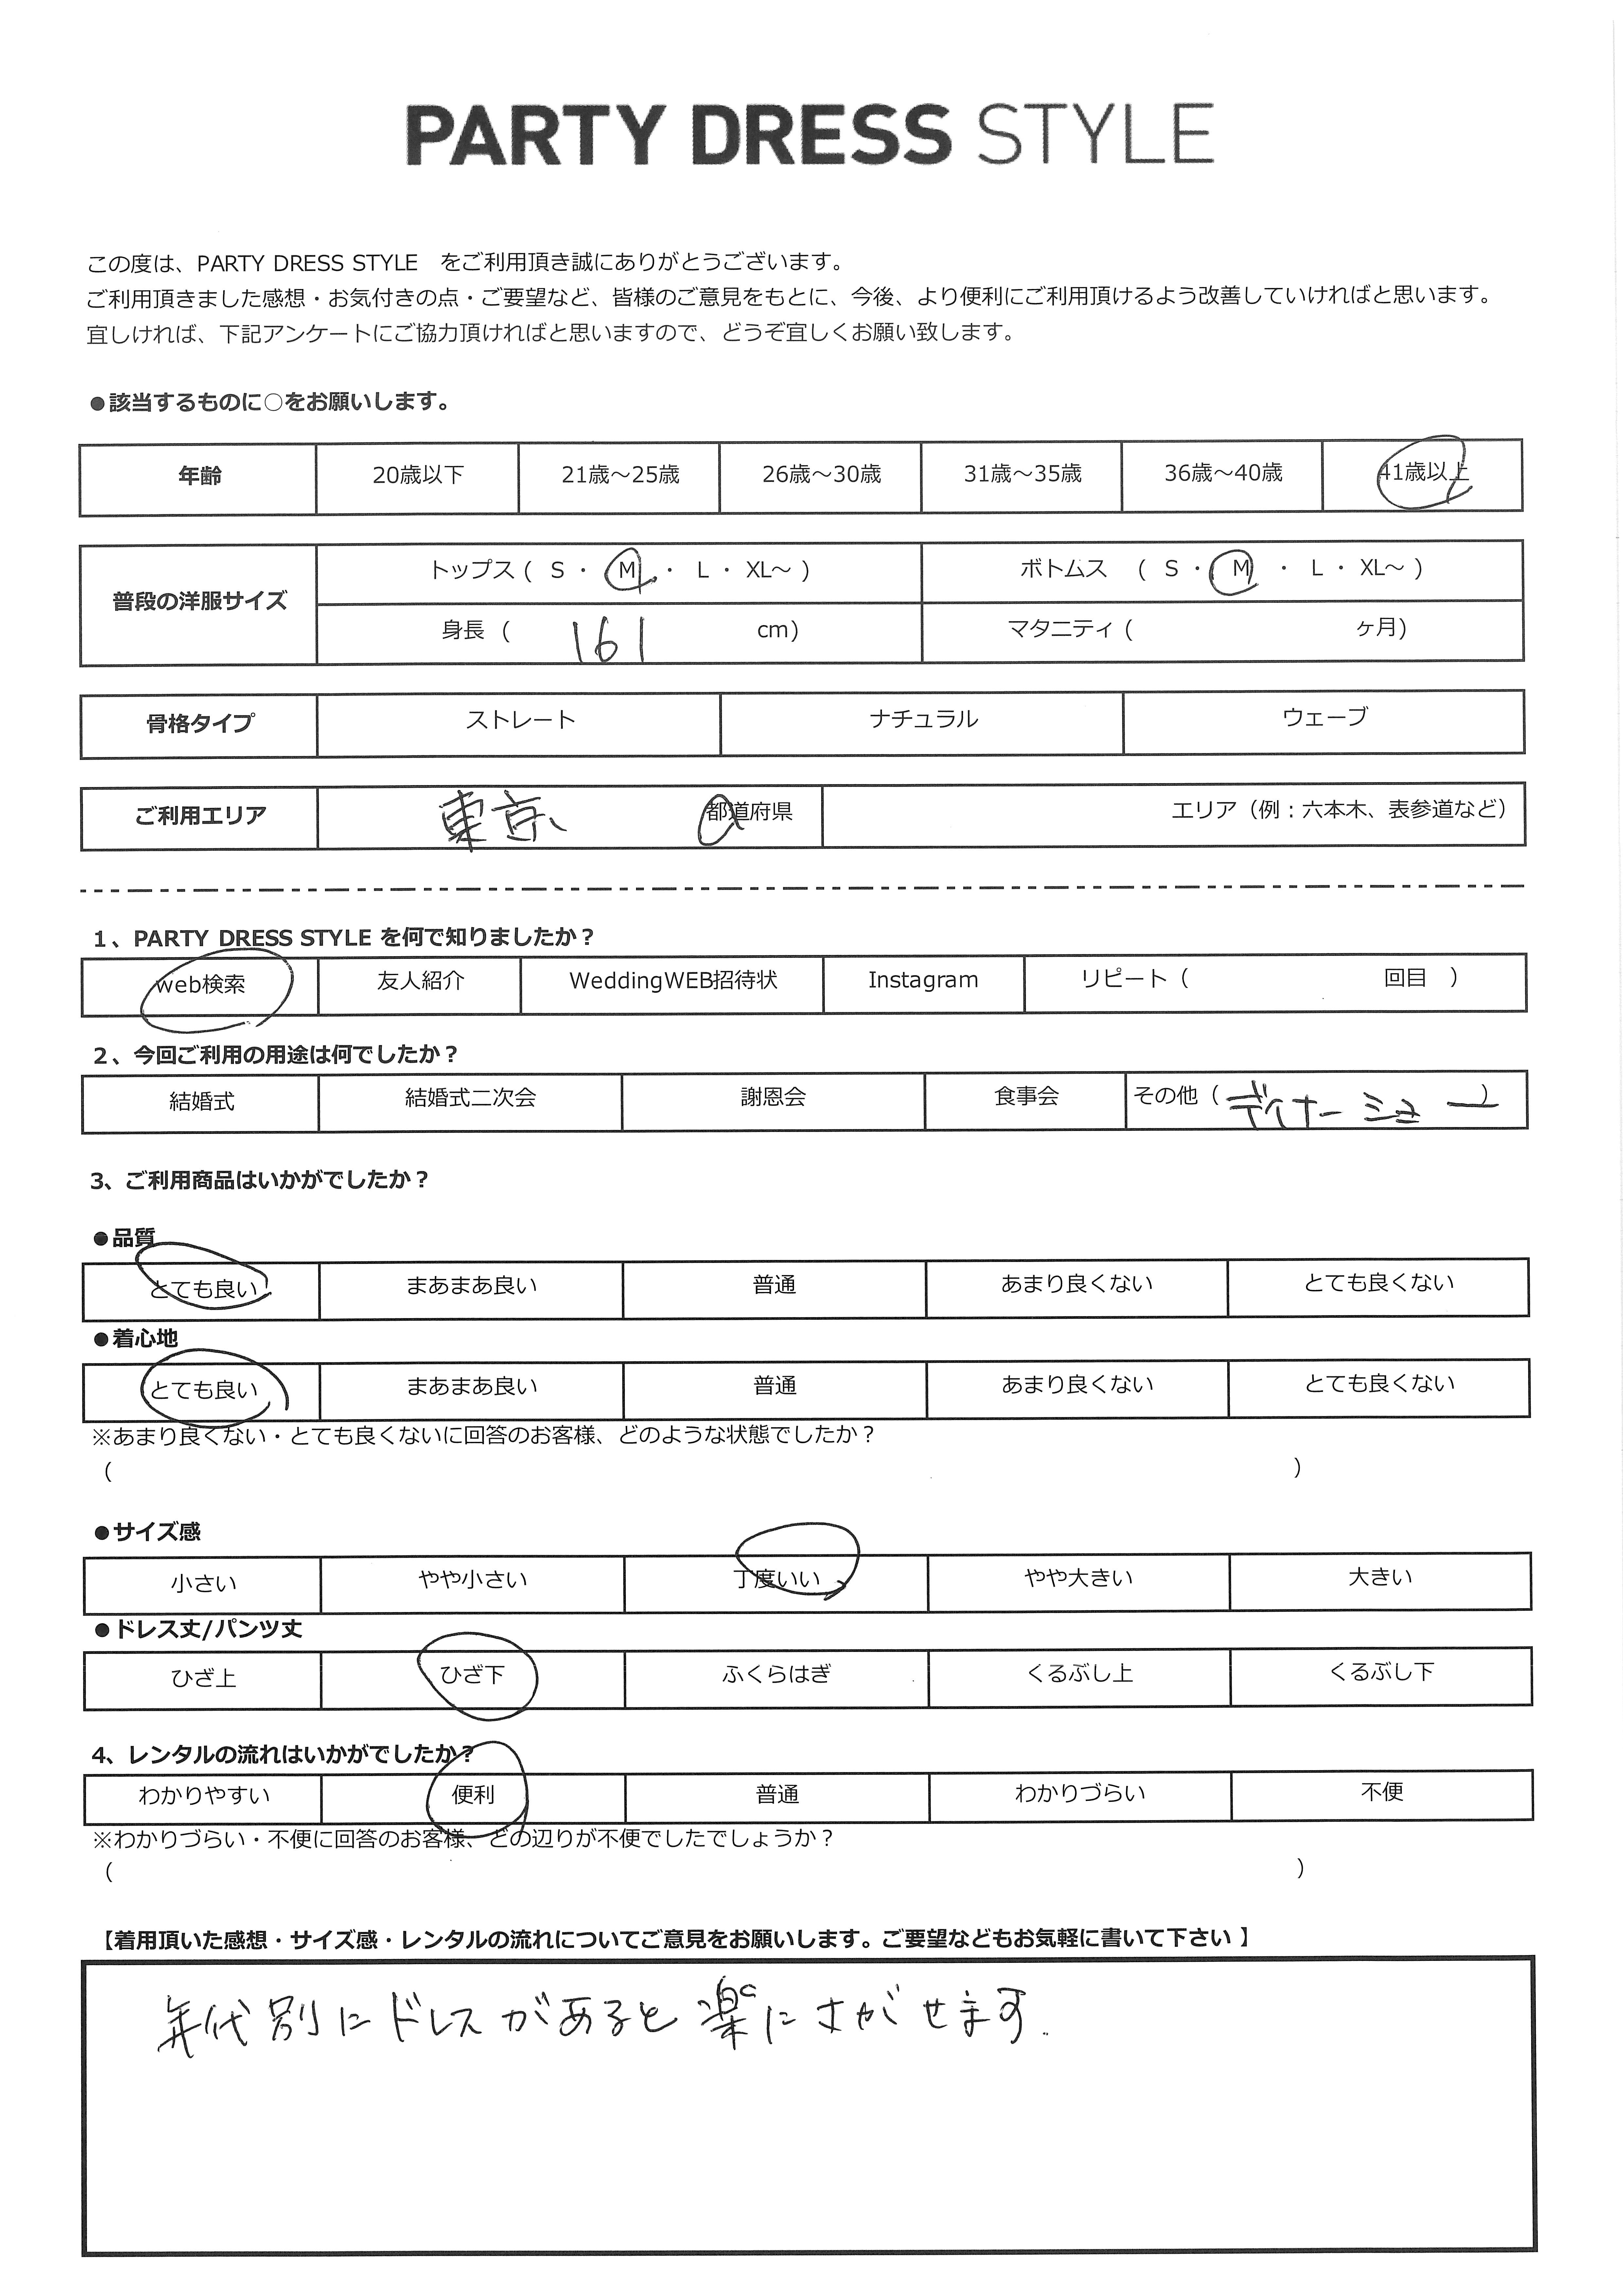 PARTY DRESS STYLE
この度は、PARTY DRESS STYLE をご利用頂き誠にありがとうございます。
ご利用頂きました感想・お気付きの点・ご要望など、皆様のご意見をもとに、今後、より便利にご利用頂けるよう改善していければと思います。
宜しければ、下記アンケートにご協力頂ければと思いますので、どうぞ宜しくお願い致します。
●該当するものに○をお願いします。
年齢 20歳以下 21歳～25歳 26歳～30歳 31歳～35歳 36歳～40歳 41歳以上
普段の洋服サイズ トップス ( S ・ M ・ L ・ XL～ ) ボトムス ( S ・ M ・ L ・ XL～ )
身長 ( 161 cm) マタニティ ( ヶ月)
骨格タイプ ストレート ナチュラル ウェーブ
ご利用エリア 東京 都道府県 エリア（例：六本木、表参道など）
1、PARTY DRESS STYLE を何で知りましたか？
web検索 友人紹介 WeddingWEB招待状 Instagram リピート（ 回目 ）
2、今回ご利用の用途は何でしたか？
結婚式 結婚式二次会 謝恩会 食事会 その他（ディナーショー）
3、ご利用商品はいかがでしたか？
●品質
とても良い まあまあ良い 普通 あまり良くない とても良くない
●着心地
とても良い まあまあ良い 普通 あまり良くない とても良くない
※あまり良くない・とても良くないに回答のお客様、どのような状態でしたか？
（ ）
●サイズ感
小さい やや小さい 丁度いい やや大きい 大きい
●ドレス丈/パンツ丈
ひざ上 ひざ下 ふくらはぎ くるぶし上 くるぶし下
4、レンタルの流れはいかがでしたか？
わかりやすい 便利 普通 わかりづらい 不便
※わかりづらい・不便に回答のお客様、どの辺りが不便でしたでしょうか？
（ ）
【着用頂いた感想・サイズ感・レンタルの流れについてご意見をお願いします。ご要望などもお気軽に書いて下さい 】
年代別にドレスがあると楽にさがせます.